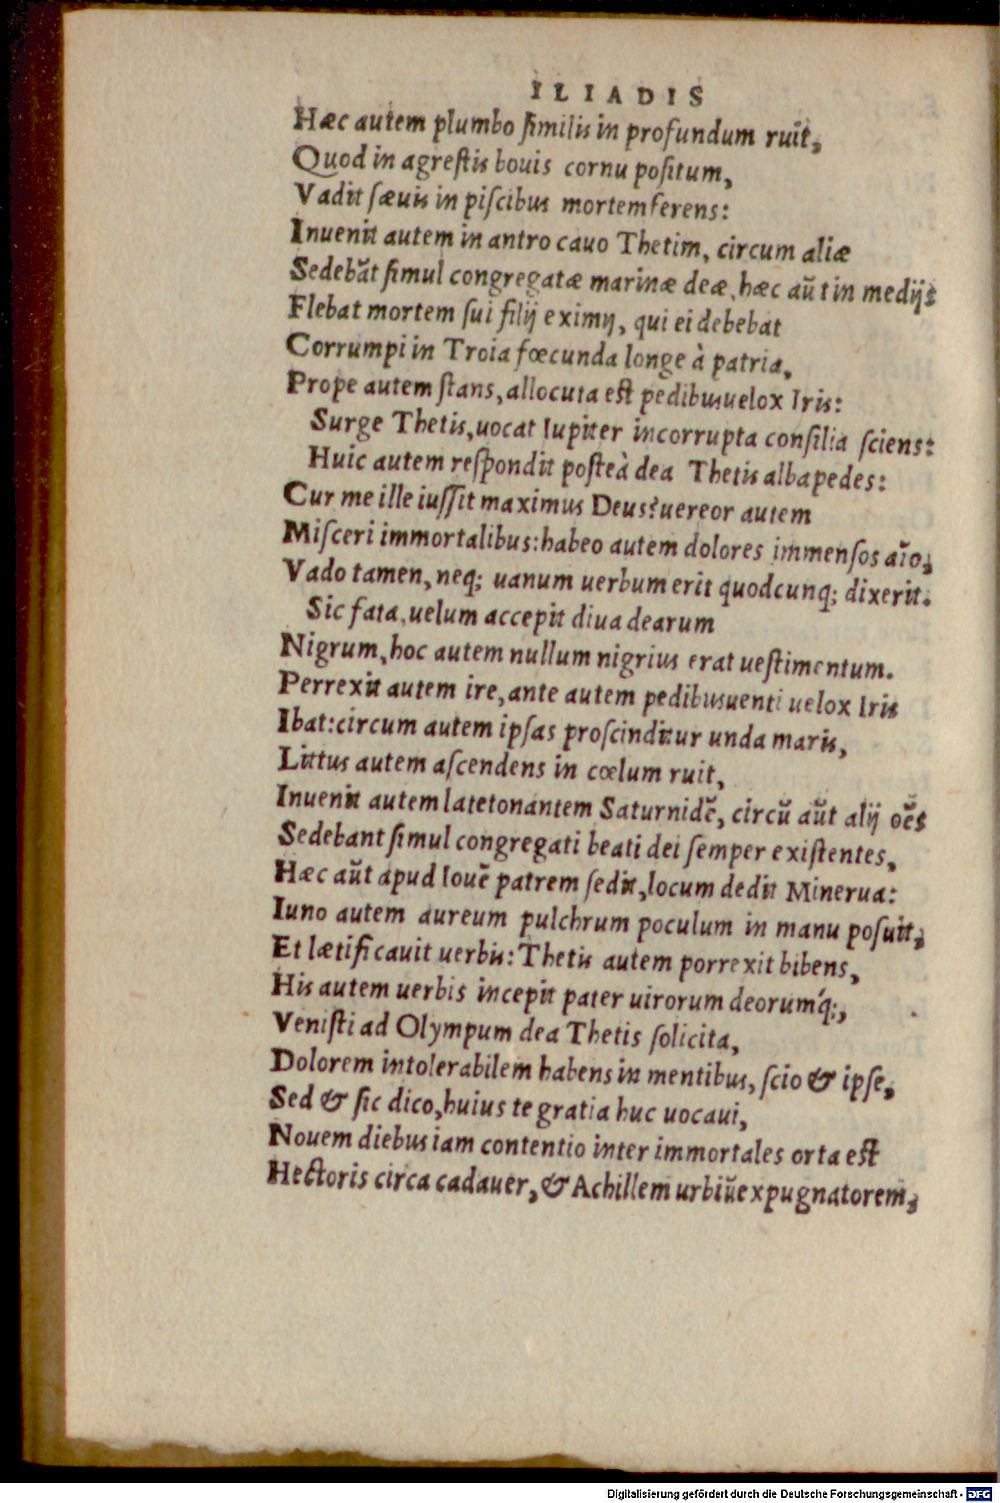 ILIADIS
Hæc autem plumbo ſimilis in profundum ruit,
Quod in agreſtis bouis cornu poſitum,
Vadit ſæuis in piſcibus mortem ferens:
Inuenit autem in antro cauo Thetim, circum aliæ
Sedebāt ſimul congregatæ marinæ deæ, hæc aūt in medijs
Flebat mortem ſui filij eximij, qui ei debebat
Corrumpi in Troia fœcunda longe à patria,
Prope autem ſtans, allocuta eſt pedibus uelox Iris:
Surge Thetis, uocat Iupiter incorrupta conſilia ſciens:
Huic autem reſpondit poſteà dea Thetis albapedes:
Cur me ille iuſſit maximus Deus? uereor autem
Miſceri immortalibus: habeo autem dolores immenſos aīo,
Vado tamen, neq; uanum uerbum erit quodcunq; dixerit.
Sic fata, uelum accepit diua dearum
Nigrum, hoc autem nullum nigrius erat ueſtimentum.
Perrexit autem ire, ante autem pedibus uenti uelox Iris
Ibat: circum autem ipſas proſcinditur unda maris,
Littus autem aſcendens in cœlum ruit,
Inuenit autem late tonantem Saturnidē, circū aūt alij oēs
Sedebant ſimul congregati beati dei ſemper exiſtentes,
Hæc aūt apud Iouē patrem ſedit, locum dedit Minerua:
Iuno autem aureum pulchrum poculum in manu poſuit,
Et lætificauit uerbis: Thetis autem porrexit bibens,
His autem uerbis incepit pater uirorum deorumq́;,
Veniſti ad Olympum dea Thetis ſolicita,
Dolorem intolerabilem habens in mentibus, ſcio & ipſe,
Sed & ſic dico, huius te gratia huc uocaui,
Nouem diebus iam contentio inter immortales orta eſt
Hectoris circa cadauer, & Achillem urbiū expugnatorem,
Digitalisierung gefördert durch die Deutsche Forschungsgemeinschaft - DFG